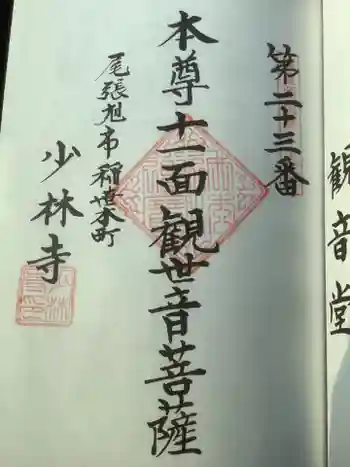 第二十三番
本尊十一面観世音菩薩
尾張旭市稲葉本町
少林寺
観音堂